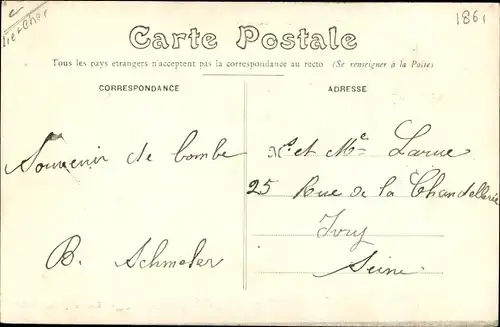 Loir & Cher
1861
Carte Postale
Tous les pays etrangers n'acceptent pas la correspondance au recto (Se renseigner à la Poste)
CORRESPONDANCE
ADRESSE
Souvenir de bombe
B. Schmeler
Mr et Me Larue
25 Rue de la Chandellerie
Ivry
Seine